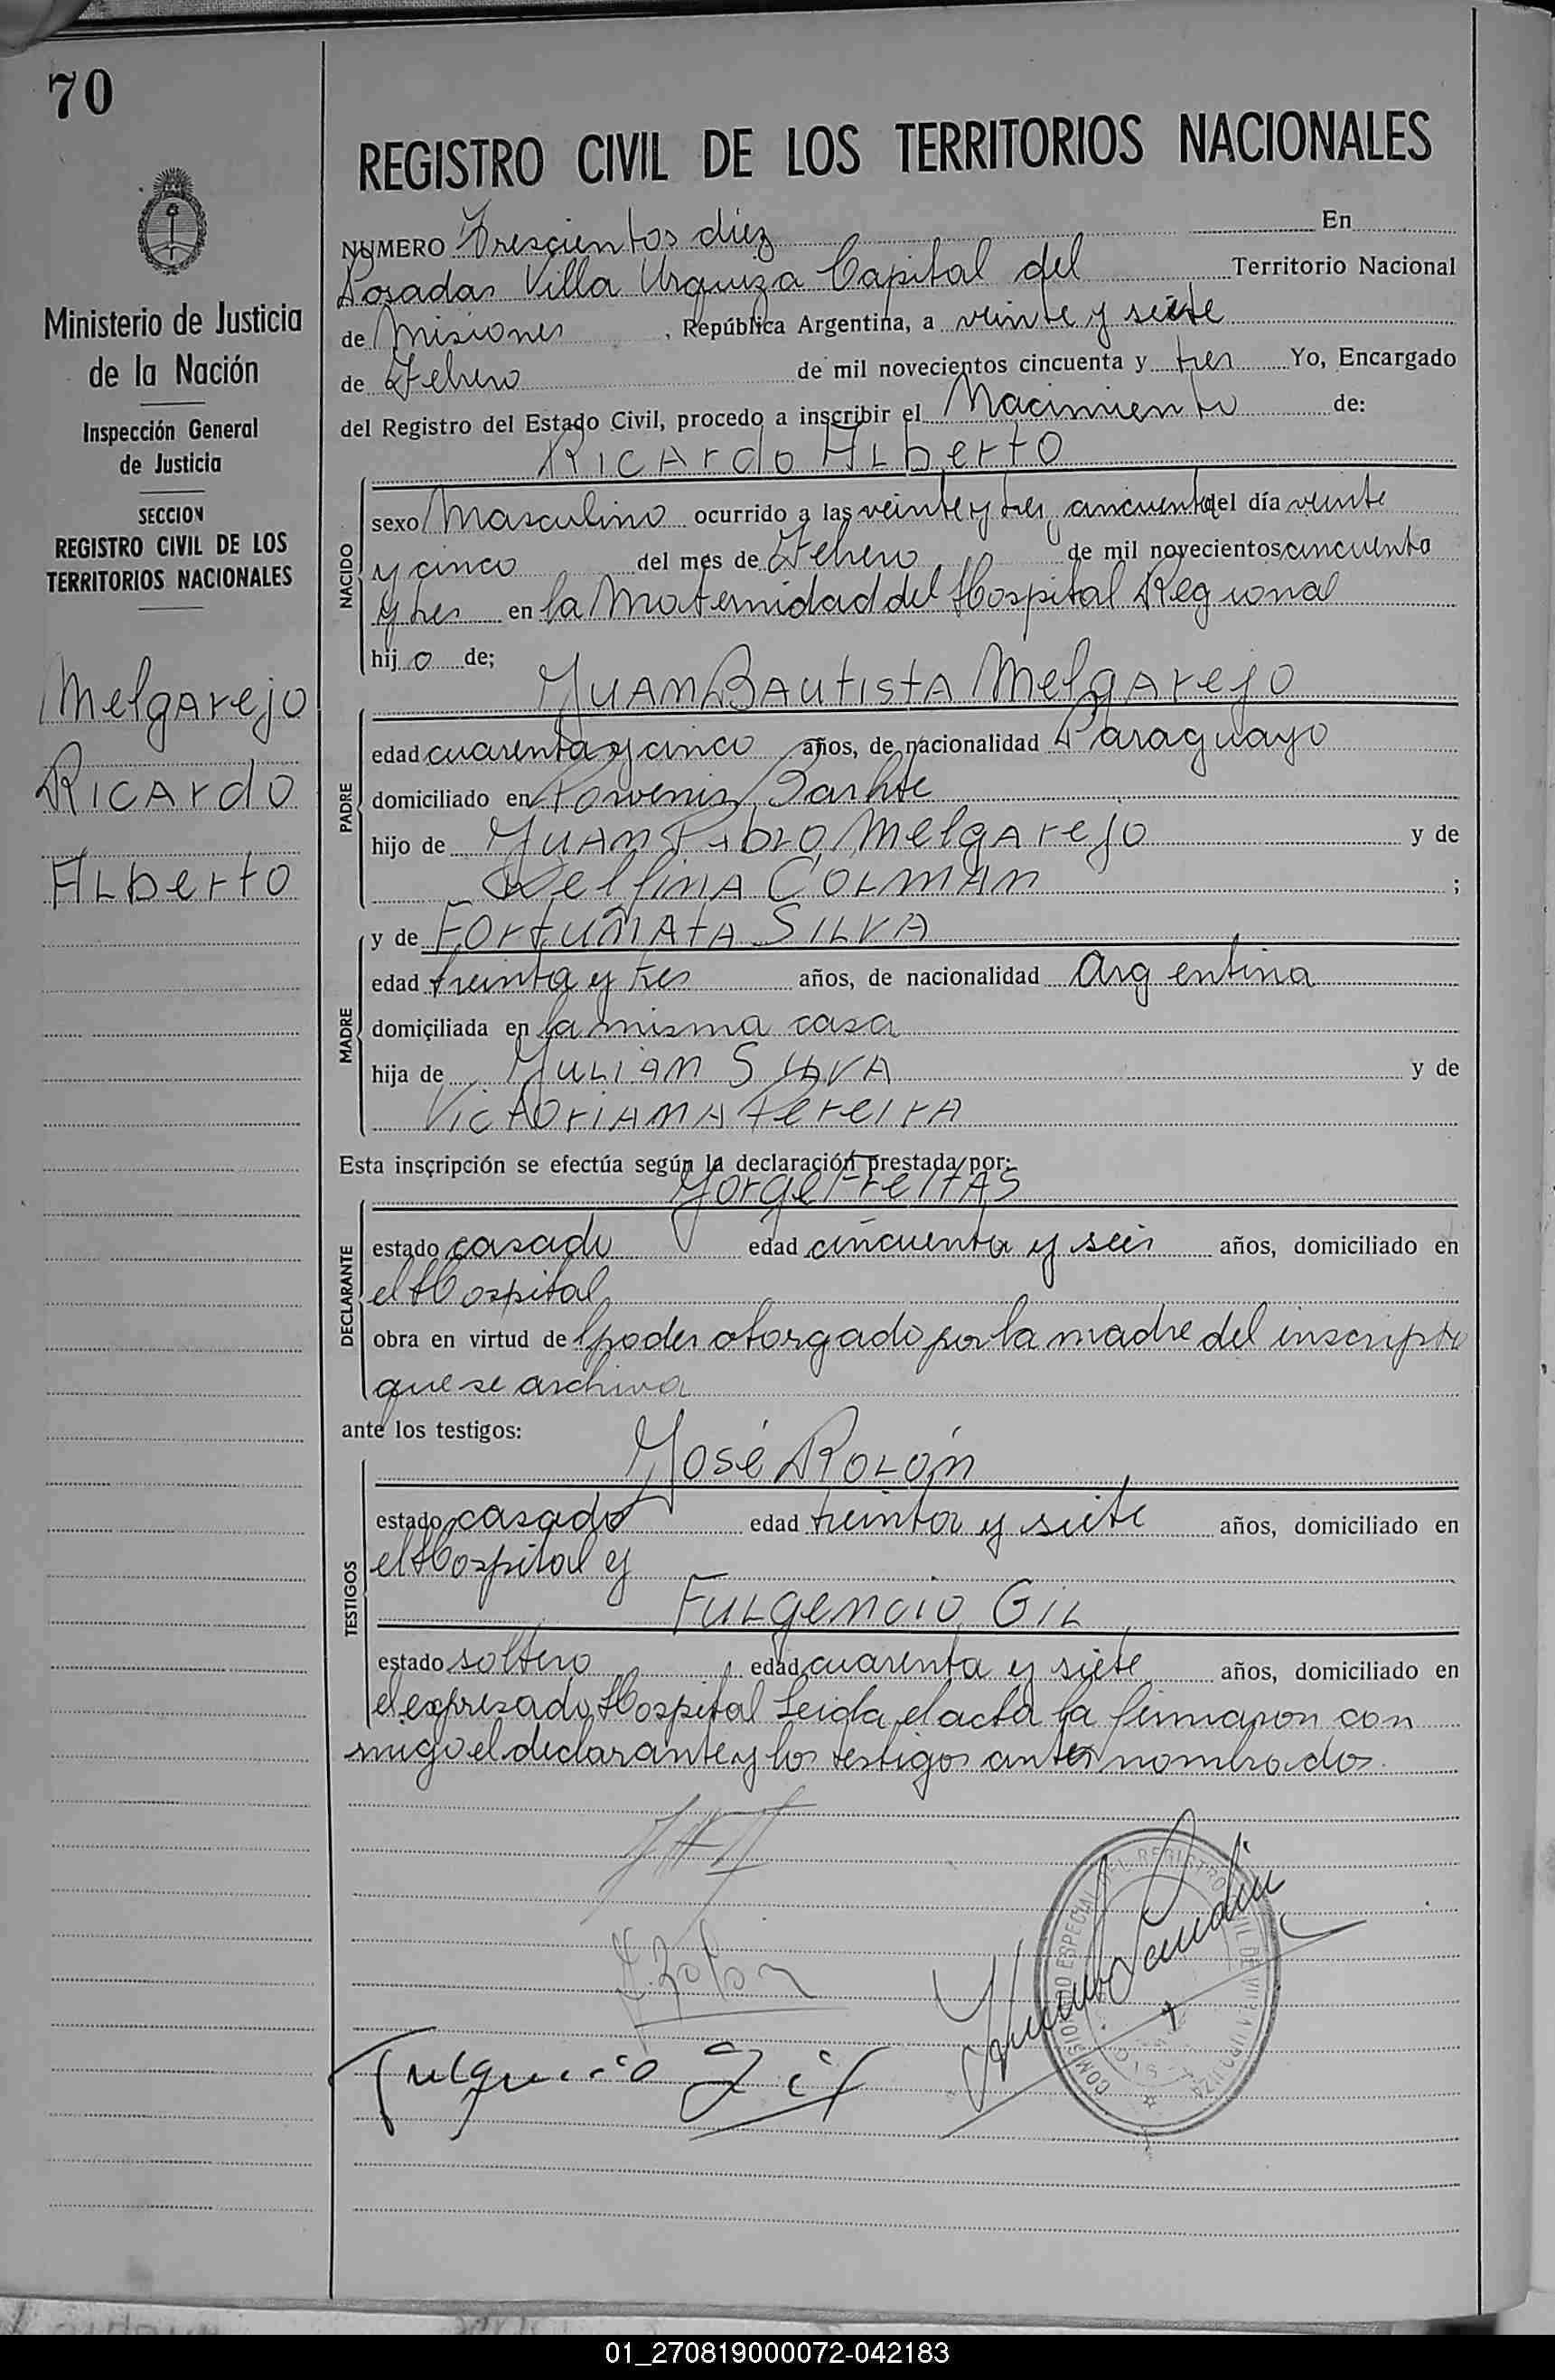 70
REGISTRO CIVIL DE LOS TERRITORIOS NACIONALES
Ministerio de Justicia
de la Nación
Inspección General
de Justicia
SECCION
REGISTRO CIVIL DE LOS
TERRITORIOS NACIONALES
Melgarejo
Ricardo
Alberto
NUMERO Trescientos diez En
Posadas Villa Urquiza Capital del Territorio Nacional
de Misiones, República Argentina, a veinte y siete
de Febrero de mil novecientos cincuenta y tres Yo, Encargado
del Registro del Estado Civil, procedo a inscribir el Nacimiento de:
Ricardo Alberto
NACIDO
sexo Masculino ocurrido a las veinte y tres y cincuenta del día veinte
y cinco del mes de Febrero de mil novecientos cincuenta
y tres en la Maternidad del Hospital Regional
hijo de;
Juan Bautista Melgarejo
PADRE
edad cuarenta y cinco años, de nacionalidad Paraguayo
domiciliado en
hijo de Juan Pablo Melgarejo y de
Delfina Colman ;
y de Fortunata Silva
MADRE
edad treinta y tres años, de nacionalidad Argentina
domiciliada en la misma casa
hija de Julian Silva y de
Victoriana Pereira
Esta inscripción se efectúa según la declaración prestada por:
Jorge Freitas
DECLARANTE
estado casado edad cincuenta y seis años, domiciliado en
el Hospital
obra en virtud del poder otorgado por la madre del inscripto
que se archiva
ante los testigos:
José Rolón
TESTIGOS
estado casado edad treinta y siete años, domiciliado en
el Hospital y
Fulgencio Gil
estado soltero edad cuarenta y siete años, domiciliado en
el expresado Hospital Leida el acta la firmaron con
migo el declarante y los testigos antes nombrados.
Rolon
Fulgencio Gil
COMISIONADO ESPECIAL DEL REGISTRO CIVIL DE VILLA URQUIZA
01_270819000072-042183